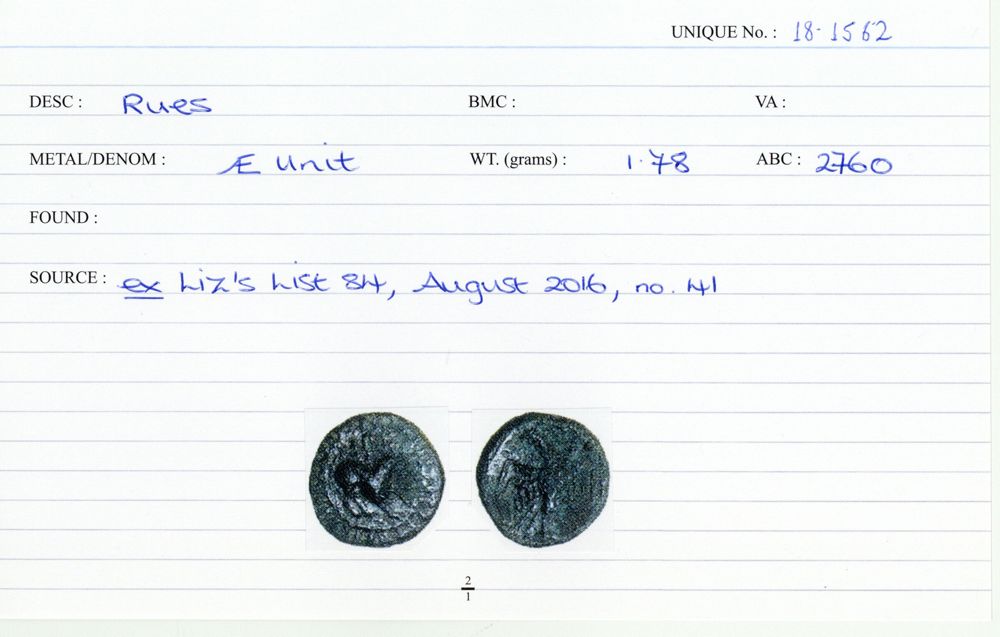 UNIQUE No. : 18·1562
DESC : Rues BMC : VA :
METAL/DENOM : Æ Unit WT. (grams) : 1·78 ABC : 2760
FOUND :
SOURCE : ex Liz's List 84, August 2016, no. 41
2
1